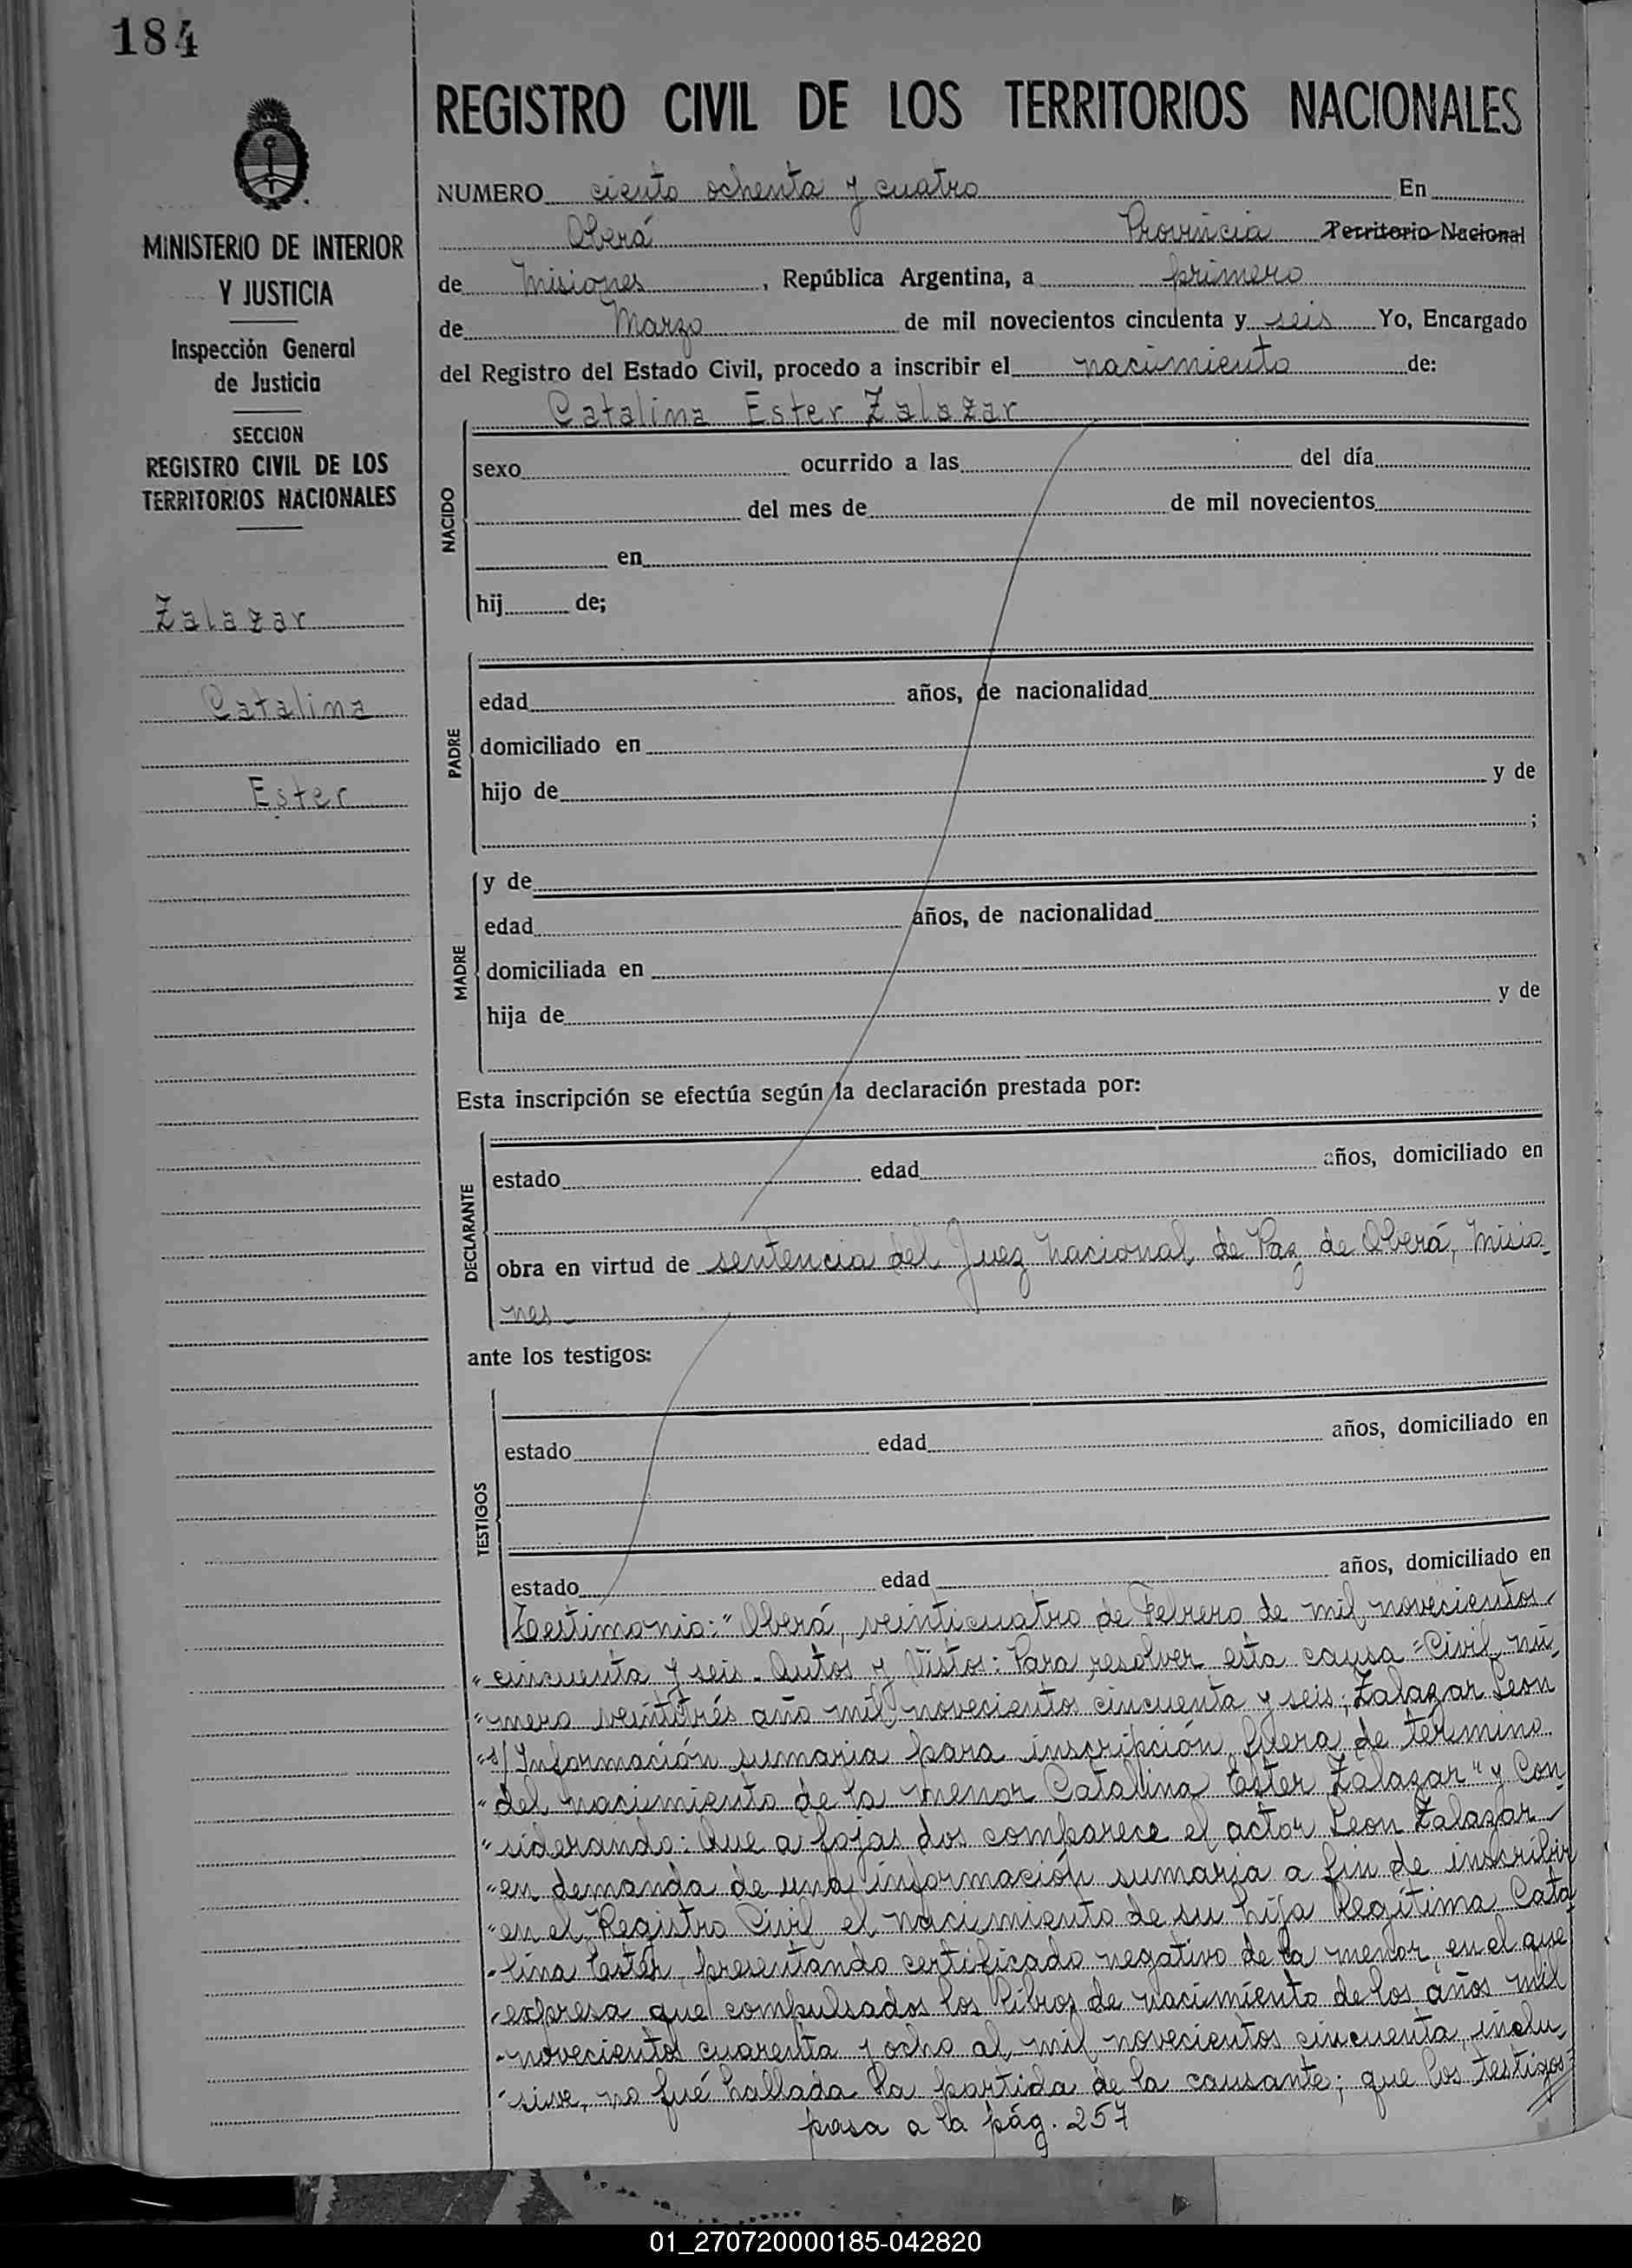 184
MINISTERIO DE INTERIOR
Y JUSTICIA
Inspección General
de Justicia
SECCION
REGISTRO CIVIL DE LOS
TERRITORIOS NACIONALES
Zalazar
Catalina
Ester
REGISTRO CIVIL DE LOS TERRITORIOS NACIONALES
NUMERO ciento ochenta y cuatro En
Oberá Provincia Territorio Nacional
de Misiones, República Argentina, a primero
de Marzo de mil novecientos cincuenta y seis Yo, Encargado
del Registro del Estado Civil, procedo a inscribir el nacimiento de:
Catalina Ester Zalazar
NACIDO
sexo ocurrido a las del día
del mes de de mil novecientos
en
hij de;
PADRE
edad años, de nacionalidad
domiciliado en
hijo de y de
;
MADRE
y de
edad años, de nacionalidad
domiciliada en
hija de y de
Esta inscripción se efectúa según la declaración prestada por:
DECLARANTE
estado edad años, domiciliado en
obra en virtud de sentencia del Juez Nacional de Paz de Oberá, Misio-
nes
ante los testigos:
TESTIGOS
estado edad años, domiciliado en
estado edad años, domiciliado en
Testimonio: "Oberá, veinticuatro de Febrero de mil novecientos
"cincuenta y seis. Autos y Vistos: Para resolver esta causa "Civil nú-
"mero veintitrés año mil novecientos cincuenta y seis; Zalazar Leon
"s/Información sumaria para inscripción fuera de término
"del nacimiento de la menor Catalina Ester Zalazar" y Con-
"siderando: Que a fojas dos comparece el actor Leon Zalazar
"en demanda de una información sumaria a fin de inscribir
"en el Registro Civil el nacimiento de su hija legítima Cata-
"lina Ester, presentando certificado negativo de la menor en el que
"expresa que compulsados los libros de nacimiento de los años mil
"novecientos cuarenta y ocho al mil novecientos cincuenta, inclu-
"sive, no fué hallada la partida de la causante; que los testigos
pasa a la pág. 257
01_270720000185-042820